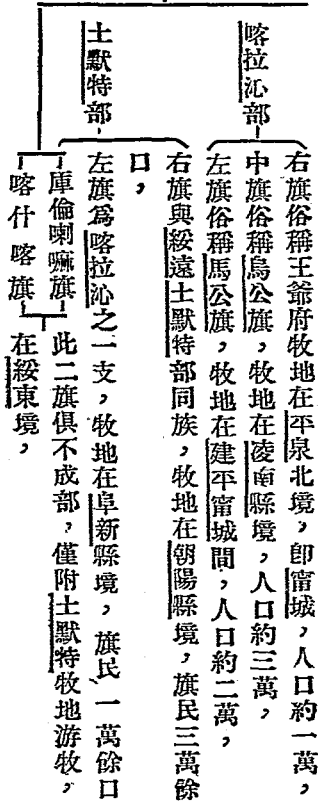 喀拉沁部
右旗俗稱王爺府牧地在平泉北境，卽甯城，人口約一萬，
中旗俗稱烏公旗，牧地在凌南縣境，人口約三萬，
左旗俗稱馬公旗，牧地在建平甯城間，人口約二萬，
土默特部
右旗與綏遠土默特部同族，牧地在朝陽縣境，旗民三萬餘
口，
左旗爲喀拉沁之一支，牧地在阜新縣境，旗民一萬餘口
庫倫喇嘛旗
喀什喀旗
此二旗俱不成部，僅附土默特牧地游牧，
在綏東境，